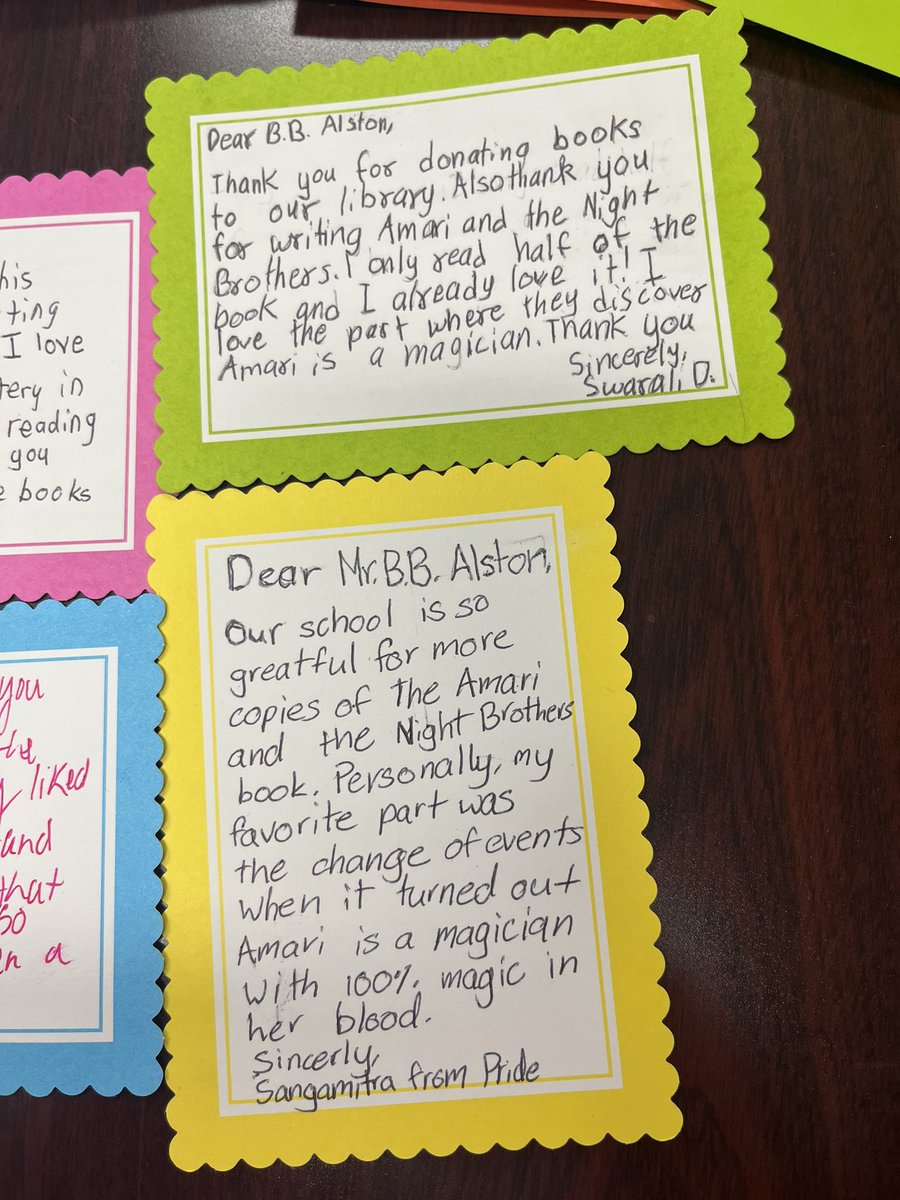 Dear B.B. Alston,
Thank you for donating books
to our library. Also thank you
for writing Amari and the Night
Brothers. I only read half of the
book and I already love it! I
love the part where they discover
Amari is a magician. Thank you
Sincerely,
Swarali D.
his
ting
I love
tery in
reading
you
books
Dear Mr. B.B. Alston,
Our school is so
greatful for more
copies of The Amari
and the Night Brothers
book. Personally, my
favorite part was
the change of events
when it turned out
Amari is a magician
with 100% magic in
her blood.
Sincerly,
Sangamitra from Pride
you
the
liked
and
that
so
a